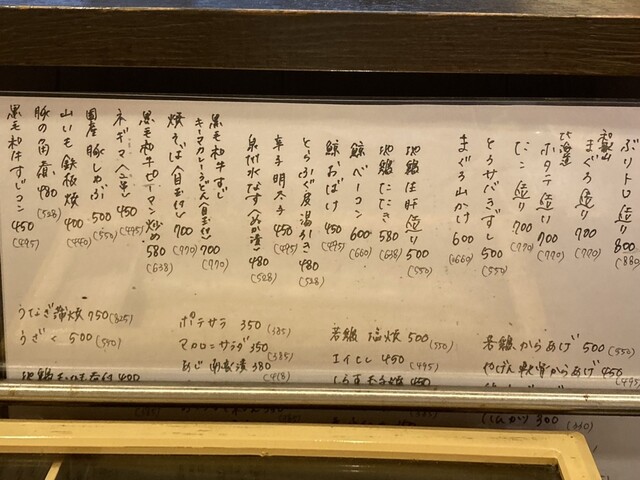 ぶりトロ造り 800 (880)
和歌山 まぐろ造り 700 (770)
北海道 ホタテ造り 700 (770)
たこ造り 700 (770)
とろサバきずし 500 (550)
まぐろ山かけ 600 (660)
地鶏生肝造り 500 (550)
地鶏たたき 580 (638)
鯨ベーコン 600 (660)
鯨おばけ 450 (495)
とらふぐ皮湯引き 480 (528)
辛子明太子 450 (495)
泉州水なす(ぬか漬) 480 (528)
黒毛和牛すじ
キーマカレーうどん(目玉付) 700 (770)
焼そば(目玉付) 700 (770)
黒毛和牛ピーマン炒め 580 (638)
ネギマ 450 (495)
国産豚しゃぶ 500 (550)
山いも鉄板焼 400 (440)
豚の角煮 480 (528)
黒毛和牛すじコン 450 (495)
うなぎ蒲焼 750 (825)
うざく 500 (550)
400
ポテサラ 350 (385)
マカロニサラダ 350 (385)
あじ南蛮漬 380 (418)
若鶏塩焼 500 (550)
エイヒレ 450 (495)
しらす玉子焼 450
若鶏からあげ 500 (550)
やげん軟骨からあげ 450 (495)
300 (330)